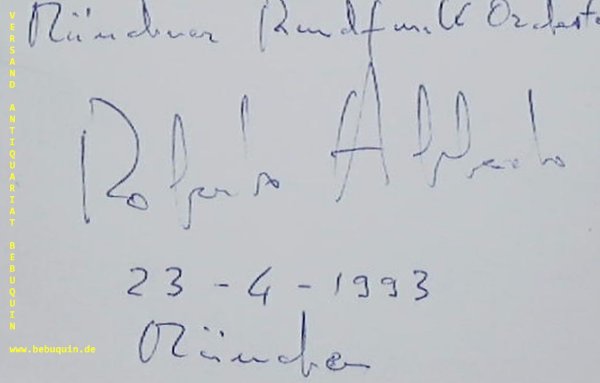 Münchner Rundfunk Orcheste
Roberto Abbado
23-4-1993
München
VERSAND ANTIQUARIAT BEBUQUIN
www.bebuquin.de